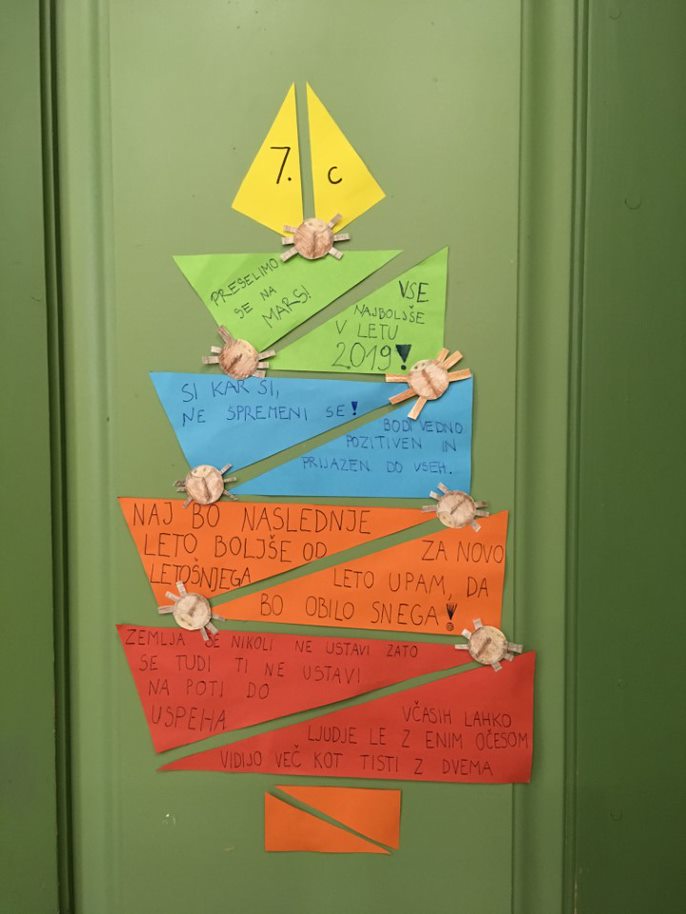 7. C
PRESELIMO
SE NA
MARS!
VSE
NAJBOLJŠE
V LETU
2019!
SI KAR SI,
NE SPREMENI SE!
BODI VEDNO
POZITIVEN IN
PRIJAZEN DO VSEH.
NAJ BO NASLEDNJE
LETO BOLJŠE OD
LETOŠNJEGA
ZA NOVO
LETO UPAM, DA
BO OBILO SNEGA!
ZEMLJA SE NIKOLI NE USTAVI ZATO
SE TUDI TI NE USTAVI
NA POTI DO
USPEHA
VČASIH LAHKO
LJUDJE LE Z ENIM OČESOM
VIDIJO VEČ KOT TISTI Z DVEMA